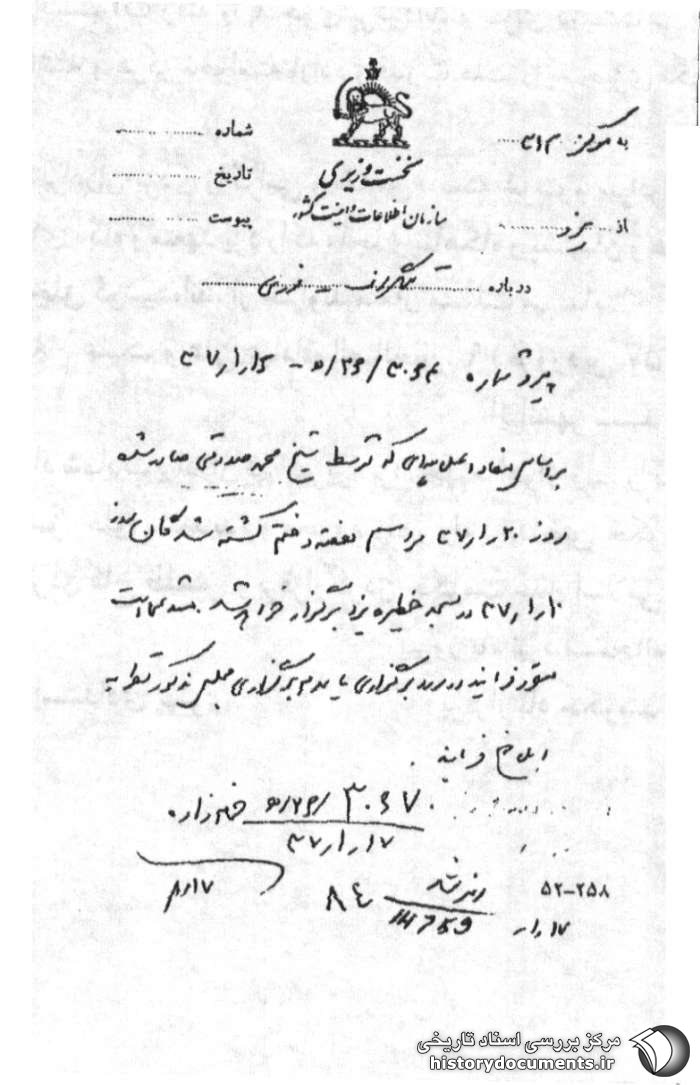 به مرکز ۳۱۲
شماره
نخست وزیری
تاریخ
سازمان اطلاعات و امنیت کشور
از یزد
پیوست
درباره تلگراف - فوری
پیرو شماره ۳۰۶۴/۲۶/ه - ۳۷/۱/۱۵
بر اساس مفاد اعلامیه‌ای که توسط شیخ محمد صدوقی صادر شده
روز ۳۷/۱/۲۰ مراسم هفته و ختم کشته شدگان روز
۳۷/۱/۱۰ در مسجد حظیره یزد برگزار خواهد شد
مقرر فرمایند در مورد برگزاری یا عدم برگزاری مجلس مذکور به
ابلاغ فرمایند.
۳۰۶۷/۲۶/ه
۳۷/۱/۱۷
۵۲-۲۵۸
۸۴
مرکز بررسی اسناد تاریخی
historydocuments.ir